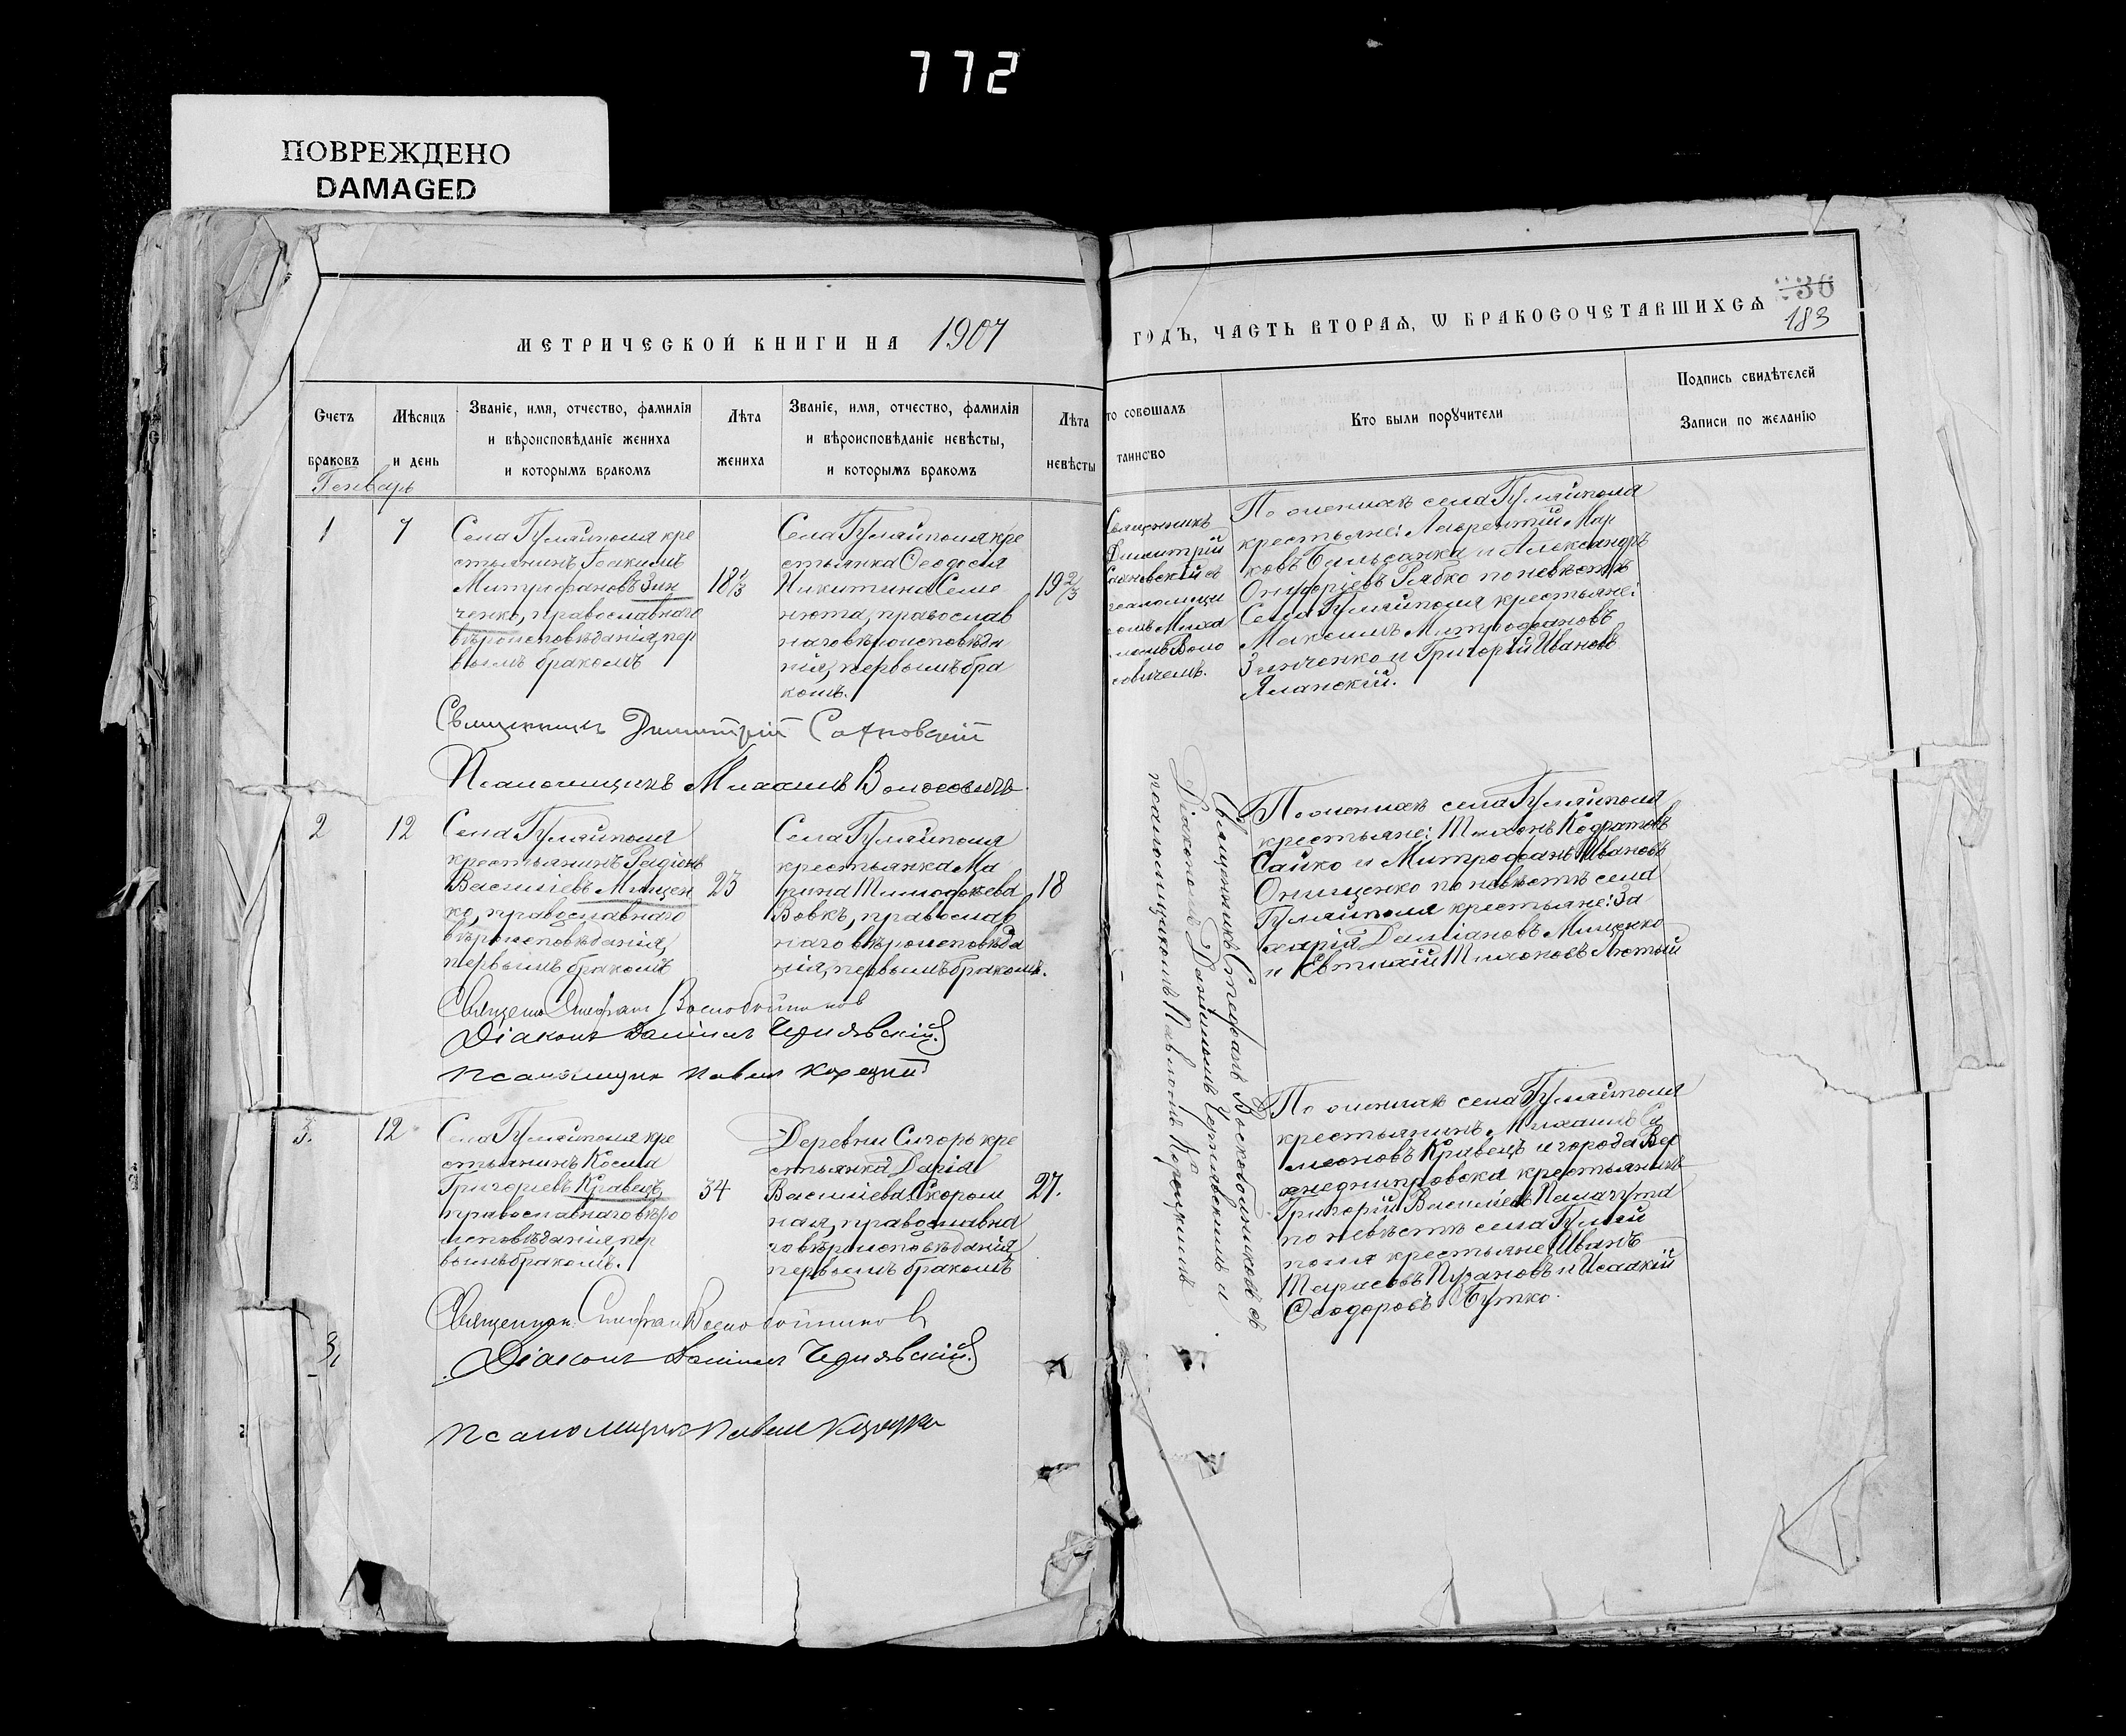 772
ПОВРЕЖДЕНО
DAMAGED
МЕТРИЧЕСКОЙ КНИГИ НА 1907
ГОДЪ, ЧАСТЬ ВТОРАѦ, Ѡ БРАКОСОЧЕТАВШИХСѦ
36
183
Счетъ
браковъ
Мѣсяцъ
и день
Званіе, имя, отчество, фамилія
и вѣроисповѣданіе жениха
и которымъ бракомъ
Лѣта
жениха
Званіе, имя, отчество, фамилія
и вѣроисповѣданіе невѣсты,
и которымъ бракомъ
Лѣта
невѣсты
то совершалъ
таинство
Кто были поручители
Подпись свидѣтелей
Записи по желанію
Генварь
1
7
Села Гуляйполя кре
стьянинъ Іоакимъ
Митрофановъ Зин
ченко, православнаго
вѣроисповѣданія, пер
вымъ бракомъ
18 1/3
Села Гуляйполя кре
стьянка Ѳеодосія
Никитина Семе
нюта, православ
наго вѣроисповѣда
нія, первымъ бра
комъ.
19 2/3
Священникъ
Димитрій
Сахновскій съ
псаломщи
комъ Миха
иломъ Воло
совичемъ.
По женихѣ села Гуляйполя
крестьяне: Лаврентій Мар
ковъ и Александръ
Онуфріевъ Рябко по невѣстѣ
Села Гуляйполя крестьяне:
Максимъ Митрофановъ
Зинченко и Григорій Ивановъ
Яланскій.
Священникъ Димитрій Сахновскій
Псаломщикъ Михаилъ Волосовичъ
2
12
Села Гуляйполя
крестьянинъ Радіонъ
Василіевъ Мищен
ко, православнаго
вѣроисповѣданія,
первымъ бракомъ
23
Села Гуляйполя
крестьянка Ма
рина Тимофеева
Вовкъ, православ
наго вѣроисповѣда
нія, первымъ бракомъ.
18
Священникъ Стефанъ Воскобойниковъ съ
Діакономъ Даніиломъ Чернявскимъ и
псаломщикомъ Павломъ Корецкимъ
По женихѣ села Гуляйполя
крестьяне: Тихонъ Кодратовъ
Сайко и Митрофанъ Ивановъ
Онищенко по невѣстѣ села
Гуляйполя крестьяне: За
харія Даміановъ Мищенко
и Евтихій Тихоновъ Лютый
Священ Стефан Воскобойников
Діаконъ Даніилъ Чернявскій
Псаломщик Павел Корецкий
3.
12
Села Гуляйполя кре
стьянинъ Косма
Григоріевъ Кравецъ
православнаго вѣро
исповѣданія, пер
вымъ бракомъ.
34
Деревни Сигоръ кре
стьянка Дарія
Василіева Скором
ная, православна
го вѣроисповѣданія
первымъ бракомъ
27.
По женихѣ села Гуляйполя
крестьянинъ Михаилъ Си
меоновъ Кравецъ и города Вер
хнеднипровска крестьянинъ
Григорій Василіевъ
по невѣстѣ села Гуляй
поля крестьяне Иванъ
Тарасовъ Пузановъ и Исаакій
Ѳеодоровъ Бутко.
Священник Стефан Воскобойников
Діаконъ Даніилъ Чернявскій.
3,
Псаломщик Павел Корецкий